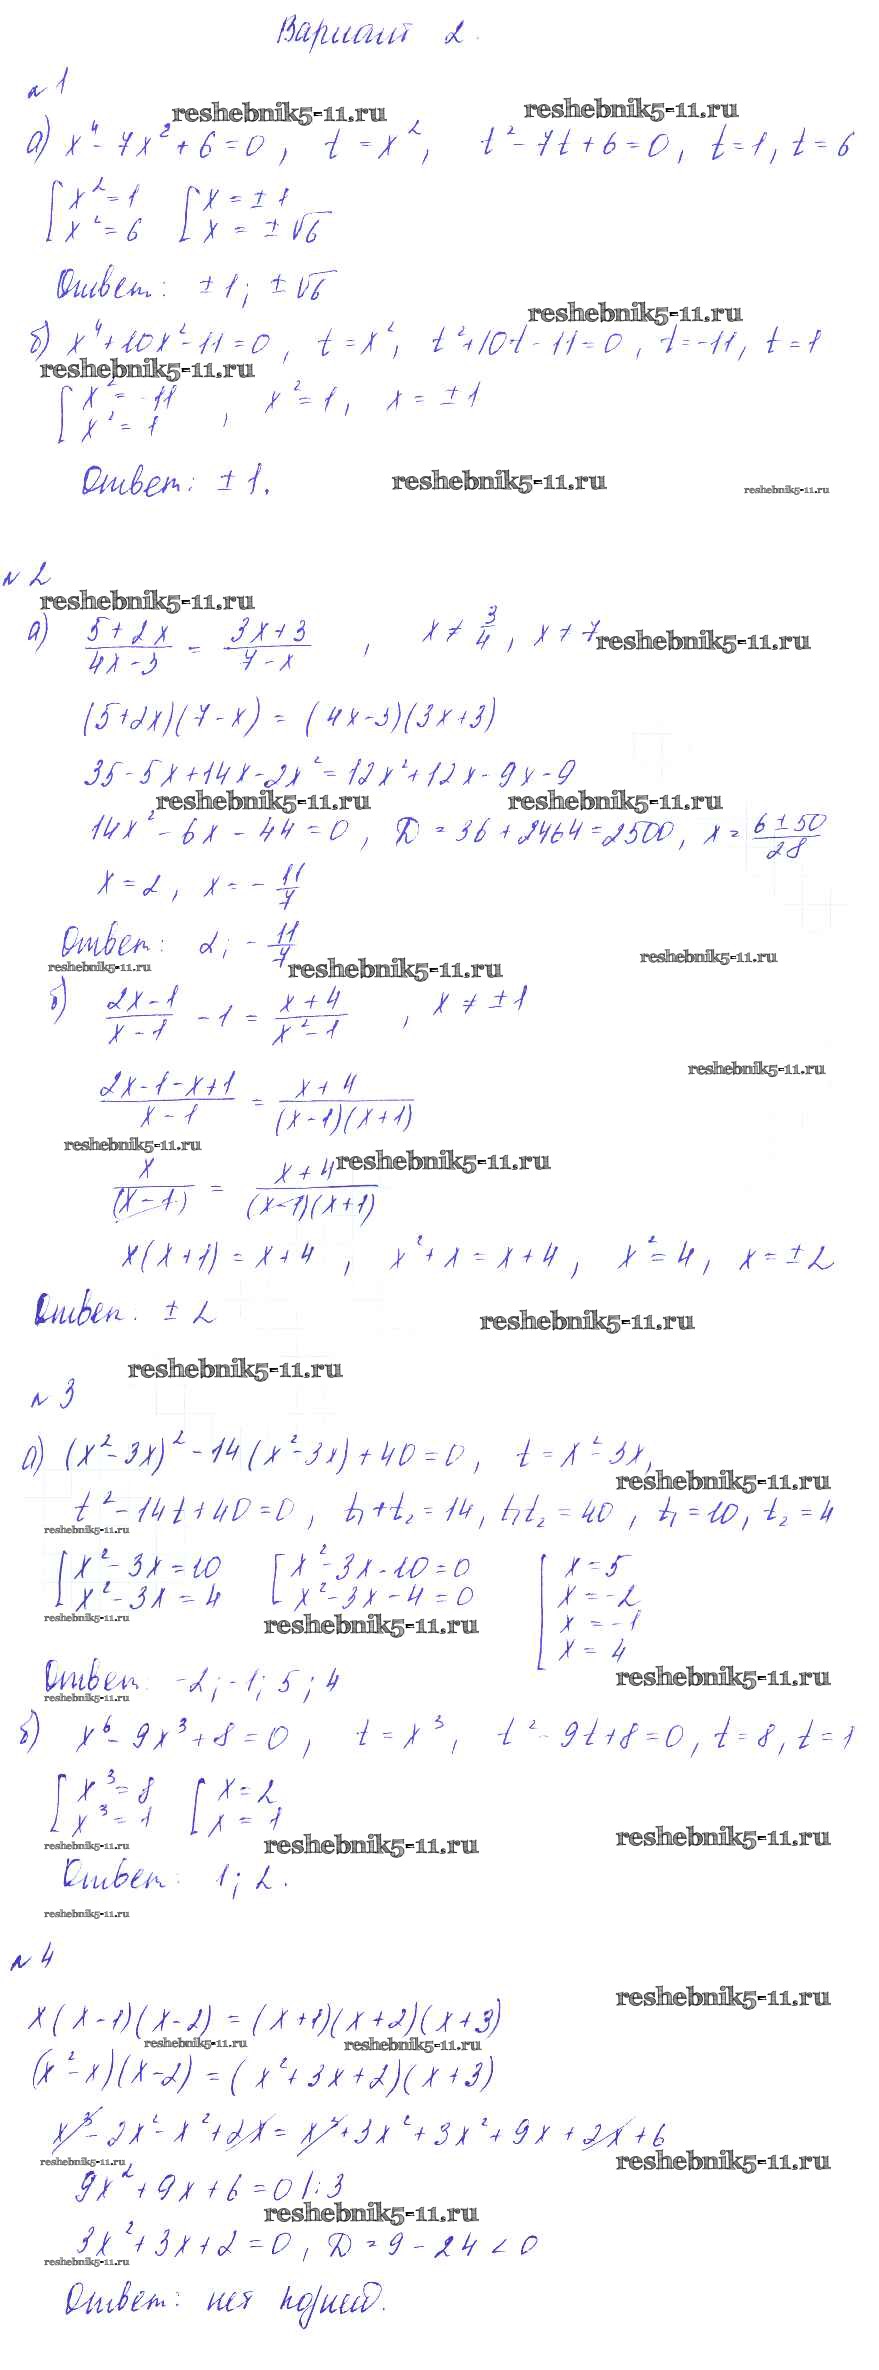 Вариант 2.
№1
reshebnik5-11.ru reshebnik5-11.ru
а) x⁴ - 7x² + 6 = 0, t = x², t² - 7t + 6 = 0, t = 1, t = 6
[x² = 1 [x = ± 1
[x² = 6 [x = ± √6
Ответ: ± 1; ± √6
reshebnik5-11.ru
б) x⁴ + 10x² - 11 = 0, t = x², t² + 10t - 11 = 0, t = -11, t = 1
reshebnik5-11.ru
[x² = -11
[x² = 1 , x² = 1, x = ± 1
Ответ: ± 1.
reshebnik5-11.ru reshebnik5-11.ru
№2
reshebnik5-11.ru
а) (5 + 2x)/(4x - 3) = (3x + 3)/(7 - x) , x ≠ 3/4, x ≠ 7
reshebnik5-11.ru
(5 + 2x)(7 - x) = (4x - 3)(3x + 3)
35 - 5x + 14x - 2x² = 12x² + 12x - 9x - 9
reshebnik5-11.ru reshebnik5-11.ru
14x² - 6x - 44 = 0, D = 36 + 2464 = 2500, x = (6 ± 50)/28
x = 2, x = - 11/7
Ответ: 2; - 11/7
reshebnik5-11.ru reshebnik5-11.ru reshebnik5-11.ru
б) (2x - 1)/(x - 1) - 1 = (x + 4)/(x² - 1) , x ≠ ± 1
reshebnik5-11.ru
(2x - 1 - x + 1)/(x - 1) = (x + 4)/((x - 1)(x + 1))
reshebnik5-11.ru reshebnik5-11.ru
x/(x - 1) = (x + 4)/((x - 1)(x + 1))
x(x + 1) = x + 4, x² + x = x + 4, x² = 4, x = ± 2
Ответ. ± 2
reshebnik5-11.ru
reshebnik5-11.ru
№3
а) (x² - 3x)² - 14(x² - 3x) + 40 = 0, t = x² - 3x,
reshebnik5-11.ru
t² - 14t + 40 = 0, t₁ + t₂ = 14, t₁t₂ = 40, t₁ = 10, t₂ = 4
reshebnik5-11.ru
[x² - 3x = 10 [x² - 3x - 10 = 0 [x = 5
[x² - 3x = 4 [x² - 3x - 4 = 0 x = -2
reshebnik5-11.ru reshebnik5-11.ru x = -1
x = 4
reshebnik5-11.ru
Ответ: -2; -1; 5; 4
reshebnik5-11.ru
б) x⁶ - 9x³ + 8 = 0, t = x³, t² - 9t + 8 = 0, t = 8, t = 1
[x³ = 8 [x = 2
[x³ = 1 [x = 1
reshebnik5-11.ru reshebnik5-11.ru reshebnik5-11.ru
Ответ: 1; 2.
reshebnik5-11.ru
№4
reshebnik5-11.ru
x(x - 1)(x - 2) = (x + 1)(x + 2)(x + 3)
reshebnik5-11.ru reshebnik5-11.ru
(x² - x)(x - 2) = (x² + 3x + 2)(x + 3)
x³ - 2x² - x² + 2x = x³ + 3x² + 3x² + 9x + 2x + 6
reshebnik5-11.ru reshebnik5-11.ru
9x² + 9x + 6 = 0 |:3
reshebnik5-11.ru
3x² + 3x + 2 = 0, D = 9 - 24 < 0
reshebnik5-11.ru
Ответ: нет корней.